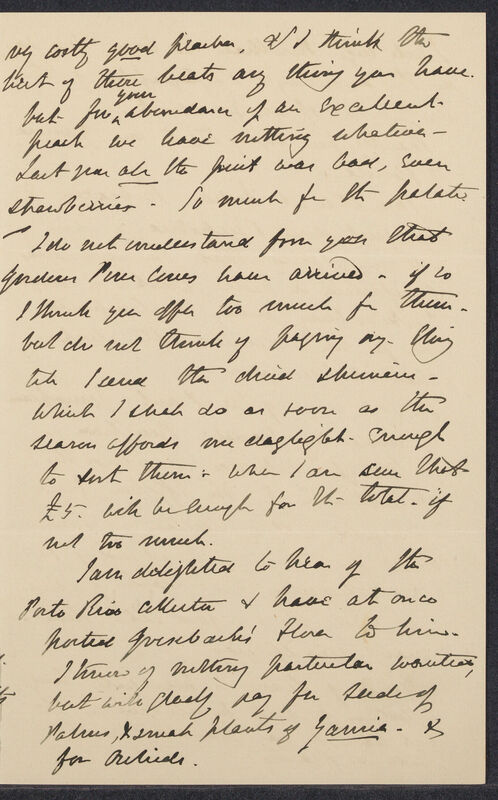 very costly good peaches, & I think the
best of these beats any thing you have.
but for your abundance of an excellent
peach we have nothing whatever –
Last year all the fruit was bad, even
strawberries – So much for the palate.
I do not understand from you that
Gordons Pine Cones have arrived – if so
I think you offer too much for them –
but do not think of paying any thing
till I send the dried specimens –
which I shall do as soon as the
season affords me daylight enough
to sort them – when I am sure that
£5. will be enough for the total – if
not too much.
I am delighted to hear of the
Porto Rico collector & have at once
posted Grisebach's Flora to him –
I know of nothing particular wanted,
but will gladly pay for Seeds of
Palms, & small plants of Zamia – &
for Orchids.